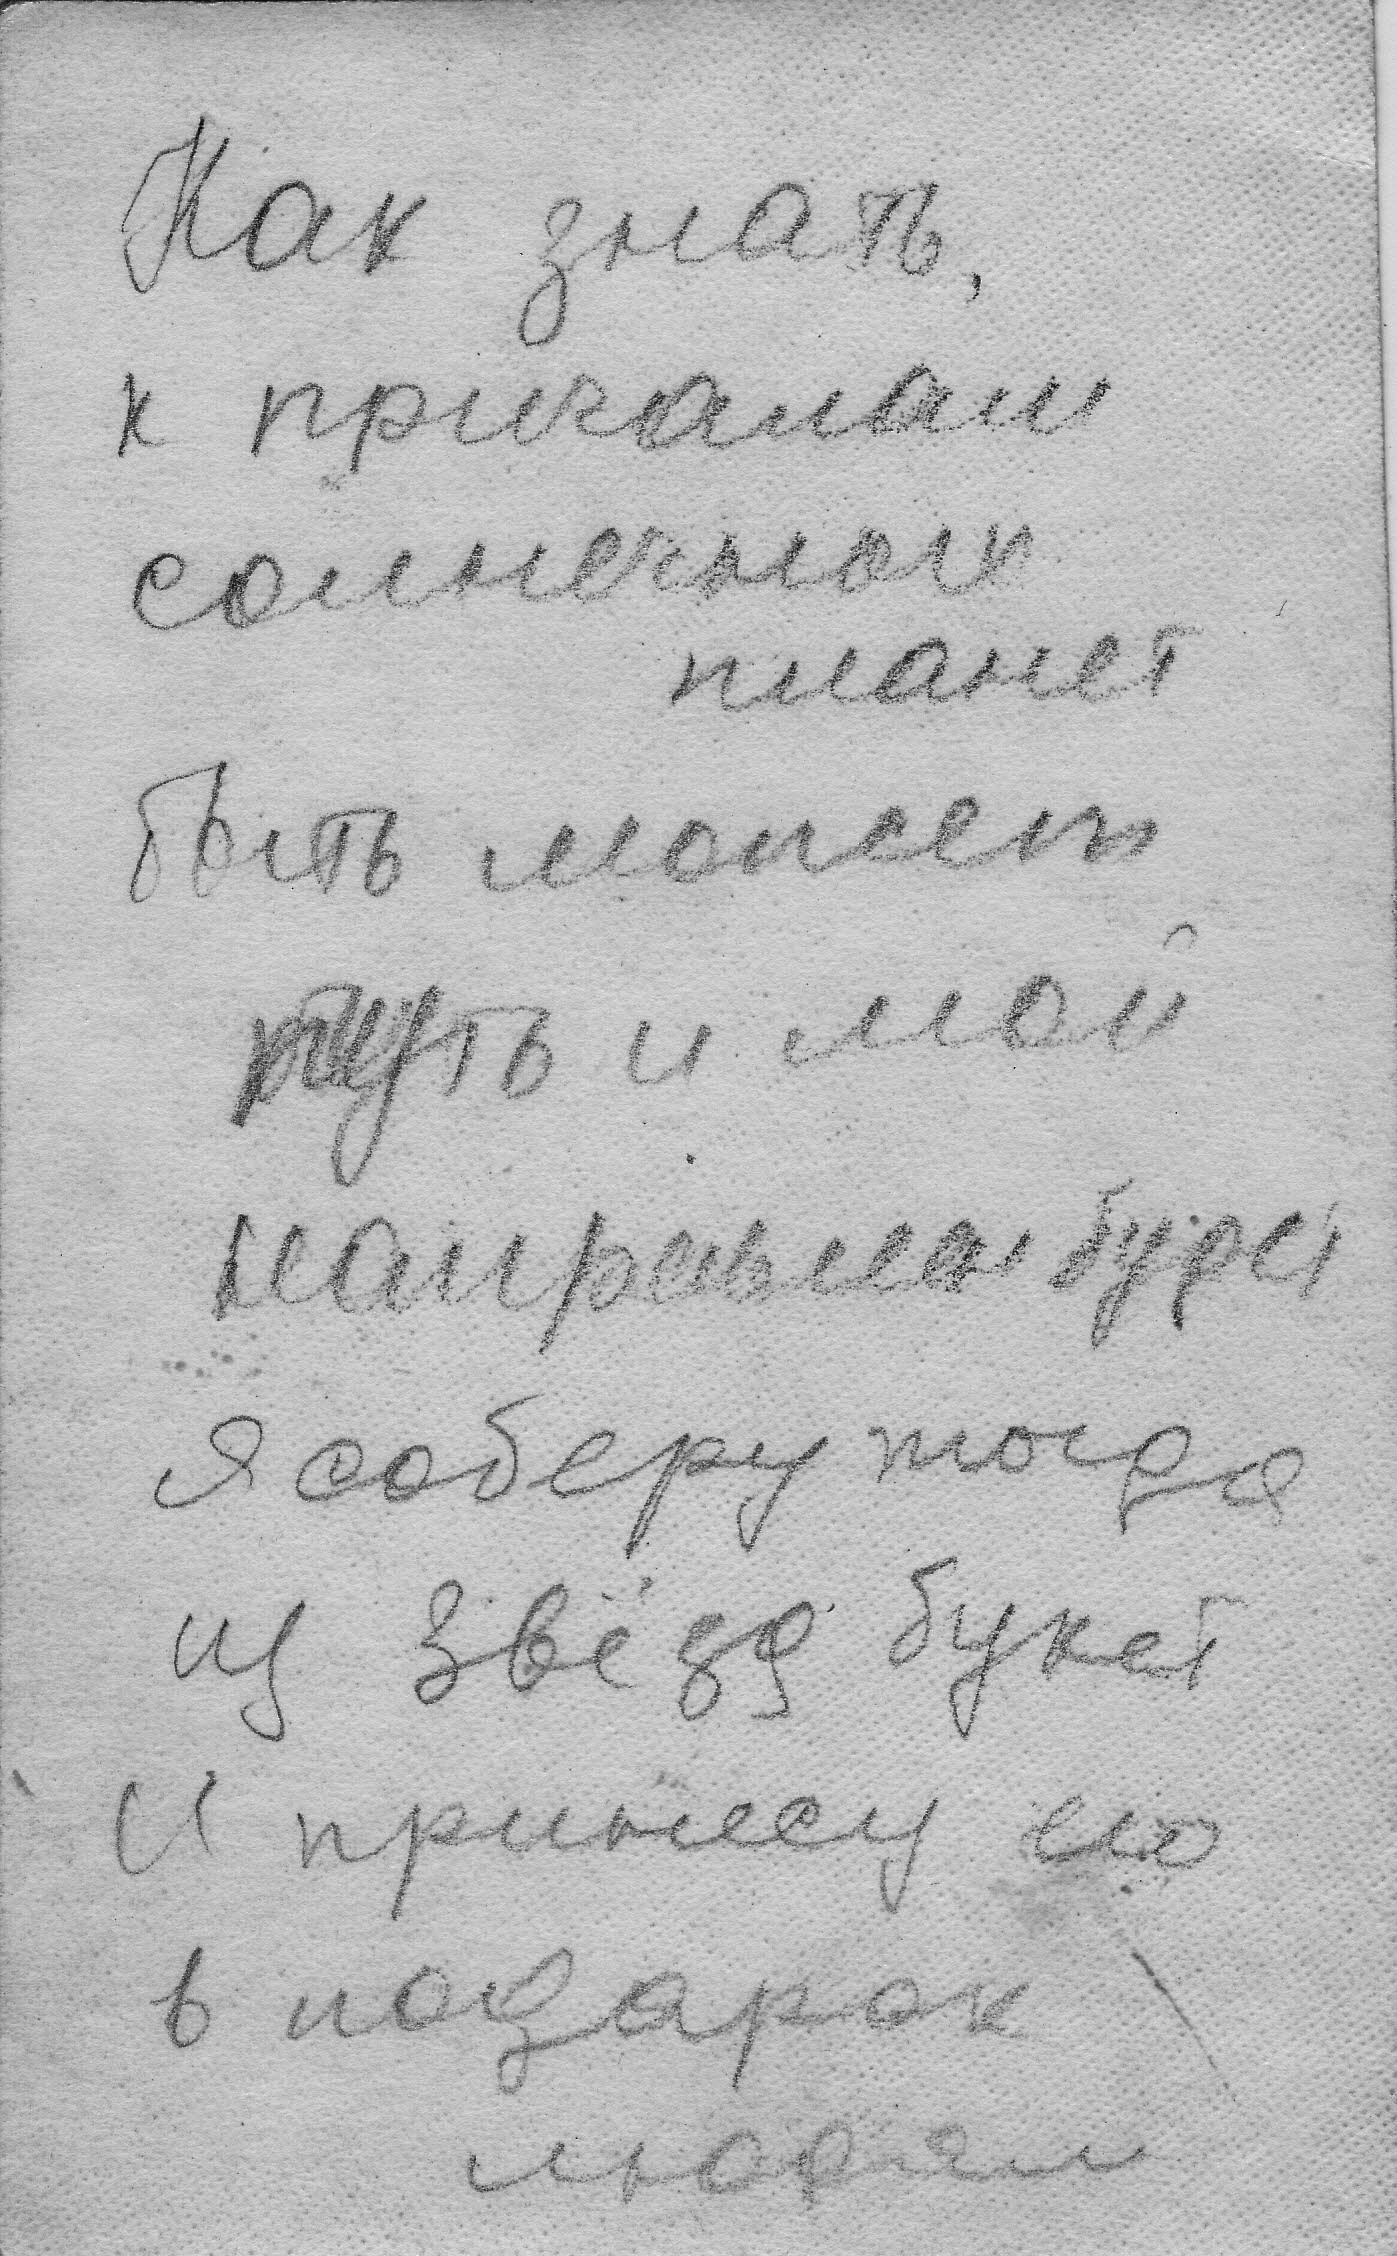 Как знать,
к причалам
солнечных
планет
быть может
путь и мой
направлен будет
Я соберу тогда
из звёзд букет
И принесу его
в подарок
людям